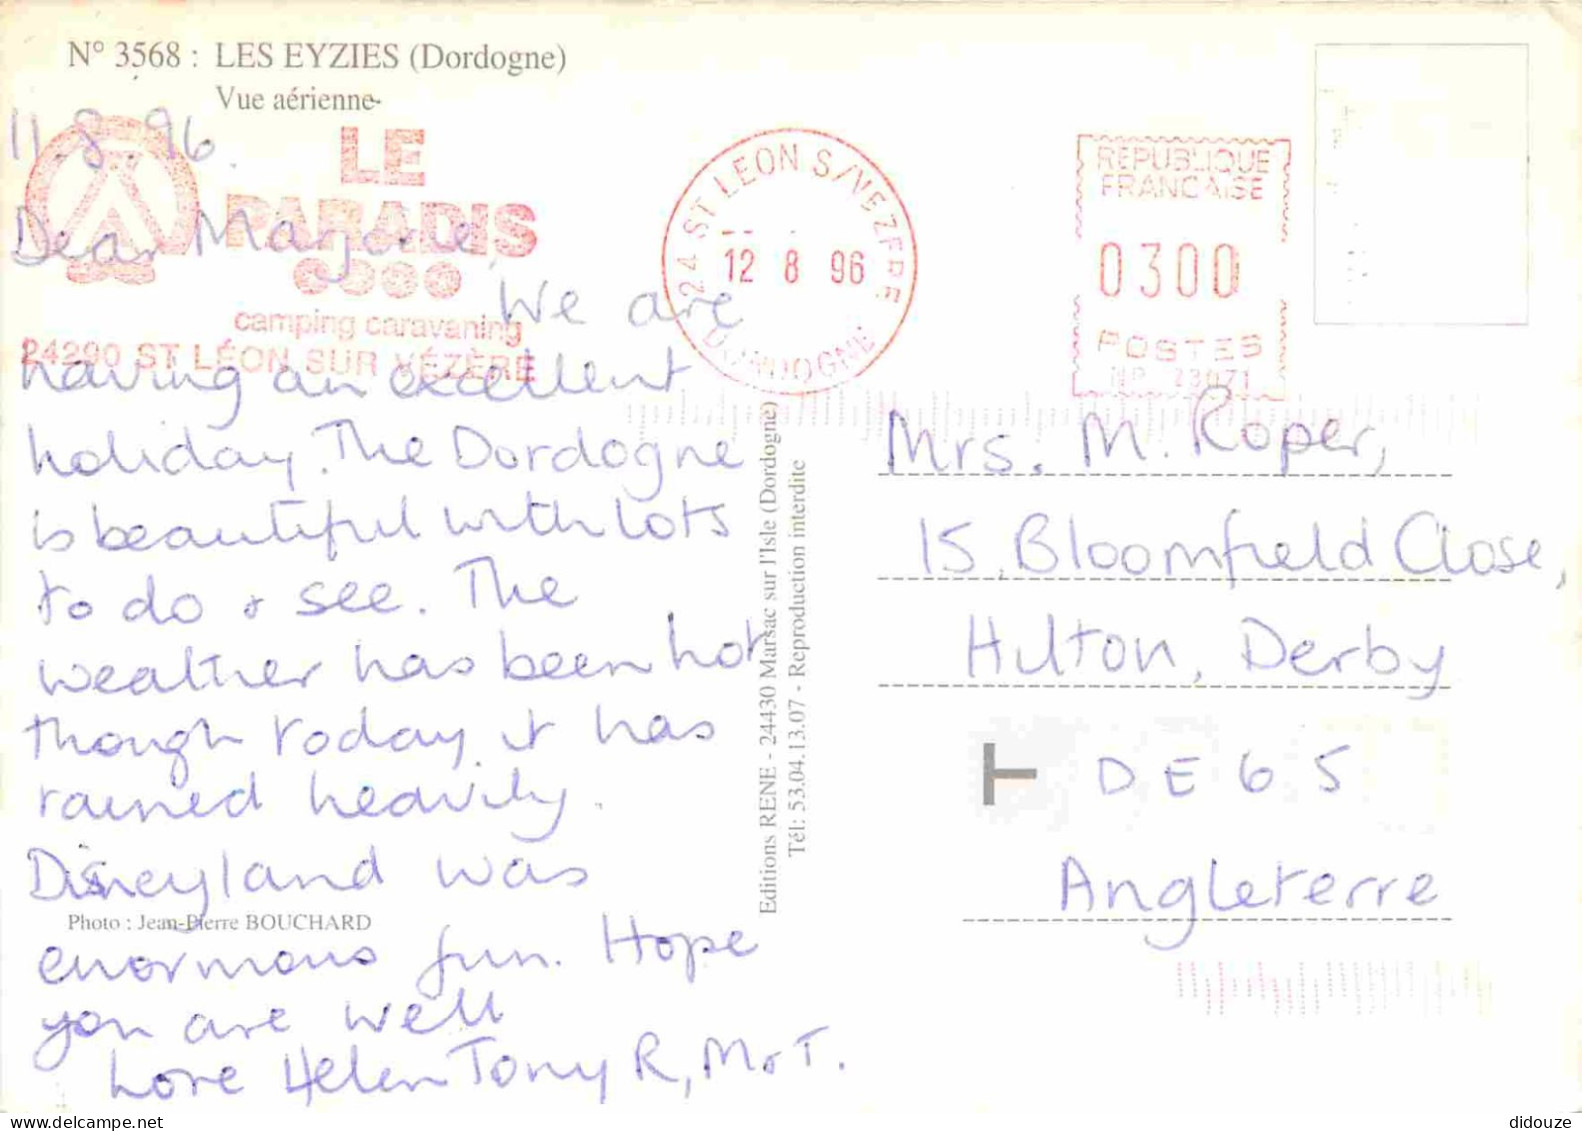 N° 3568 : LES EYZIES (Dordogne)
Vue aérienne
11.8.96.
LE
PARADIS
camping caravaning
24290 ST LÉON SUR VÉZÈRE
24 ST LEON S/VEZERE
12 8 96
DORDOGNE
REPUBLIQUE
FRANCAISE
0300
POSTES
Dear Marjorie,
We are
having an excellent
holiday. The Dordogne
is beautiful with lots
to do & see. The
weather has been hot
though today it has
rained heavily.
Disneyland was
enormous fun. Hope
you are well
Love Helen Tony R, M & T.
Photo : Jean-Pierre BOUCHARD
Editions RENE - 24430 Marsac sur l'Isle (Dordogne)
Tél: 53.04.13.07 - Reproduction interdite
Mrs. M. Roper,
15, Bloomfield Close,
Hilton, Derby
T DE65
Angleterre
didouze